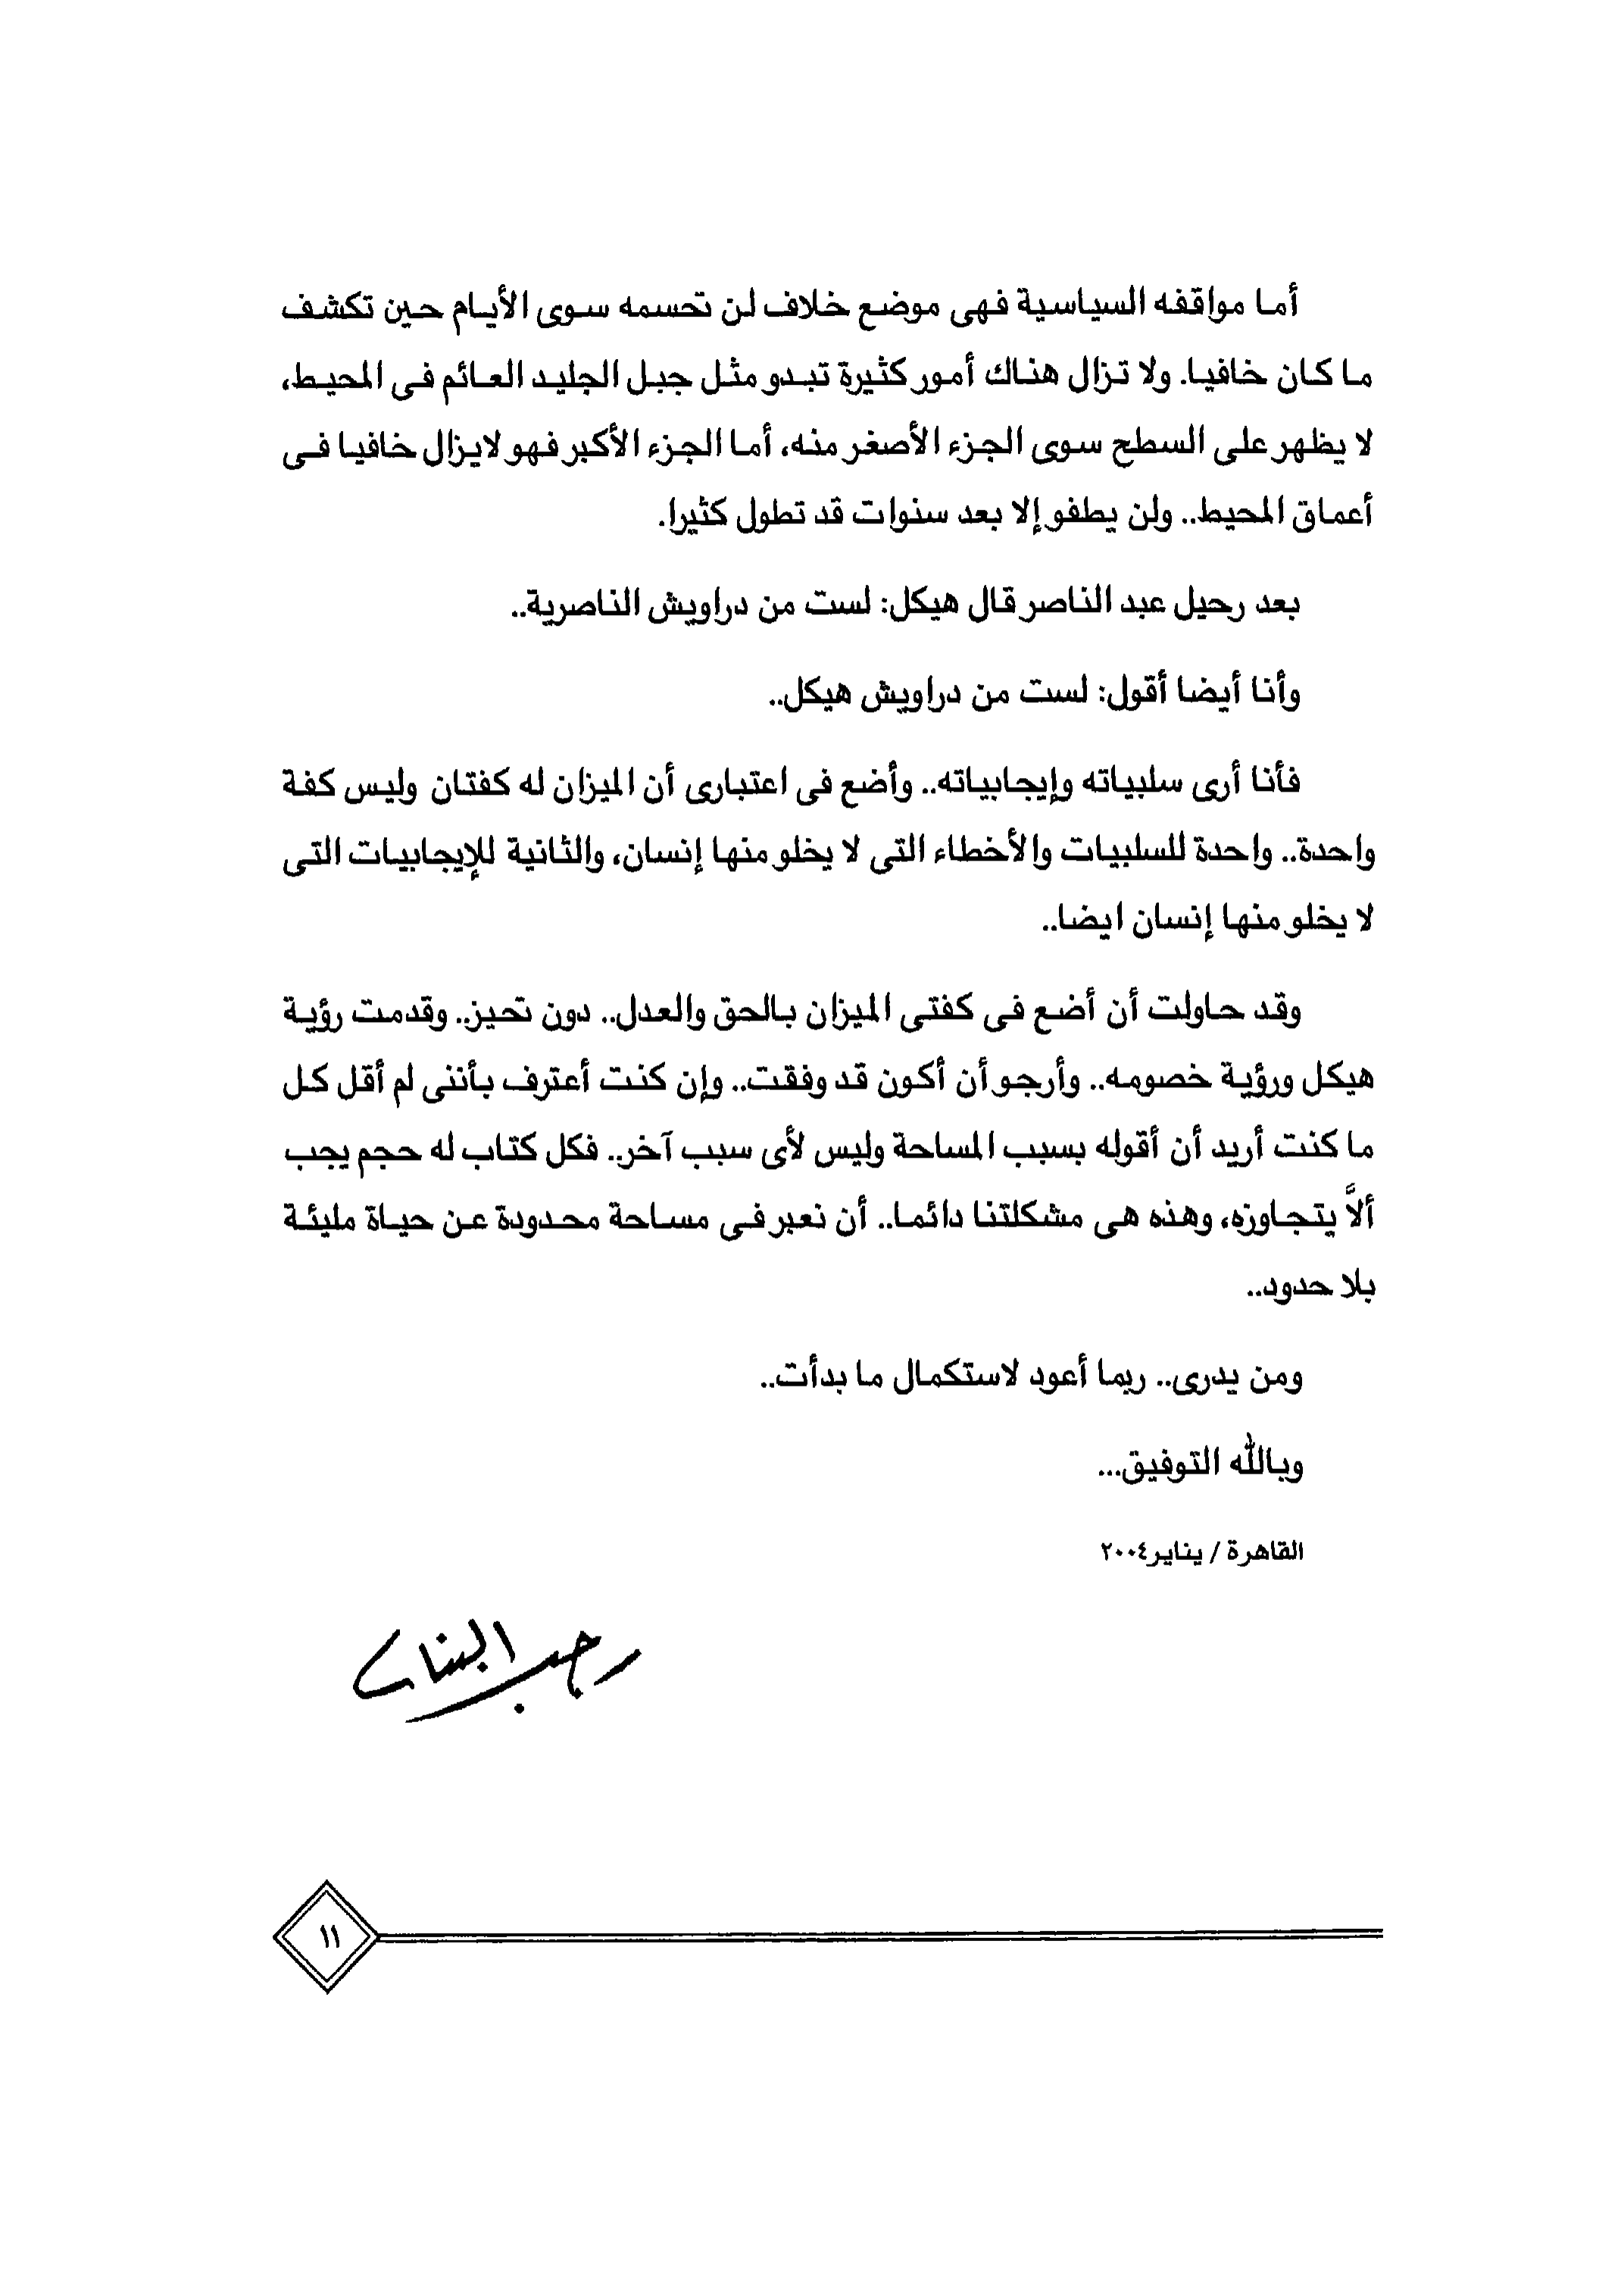 أما مواقفه السياسية فهى موضع خلاف لن تحسمه سوى الأيام حين تكشف
ما كان خافيا. ولا تزال هناك أمور كثيرة تبدو مثل جبل الجليد العائم فى المحيط،
لا يظهر على السطح سوى الجزء الأصغر منه، أما الجزء الأكبر فهو لايزال خافيا فى
أعماق المحيط.. ولن يطفو إلا بعد سنوات قد تطول كثيرا.
بعد رحيل عبد الناصر قال هيكل: لست من دراويش الناصرية..
وأنا أيضا أقول: لست من دراويش هيكل..
فأنا أرى سلبياته وإيجابياته.. وأضع فى اعتبارى أن الميزان له كفتان وليس كفة
واحدة.. واحدة للسلبيات والأخطاء التى لا يخلو منها إنسان، والثانية للإيجابيات التى
لا يخلو منها إنسان ايضا..
وقد حاولت أن أضع فى كفتى الميزان بالحق والعدل.. دون تحيز.. وقدمت رؤية
هيكل ورؤية خصومه.. وأرجو أن أكون قد وفقت.. وإن كنت أعترف بأننى لم أقل كل
ما كنت أريد أن أقوله بسبب المساحة وليس لأى سبب آخر.. فكل كتاب له حجم يجب
ألاَّ يتجاوزه، وهذه هى مشكلتنا دائما.. أن نعبر فى مساحة محدودة عن حياة مليئة
بلا حدود..
ومن يدرى.. ربما أعود لاستكمال ما بدأت..
وبالله التوفيق...
القاهرة / يناير ٢٠٠٤
رجب البنا
١١